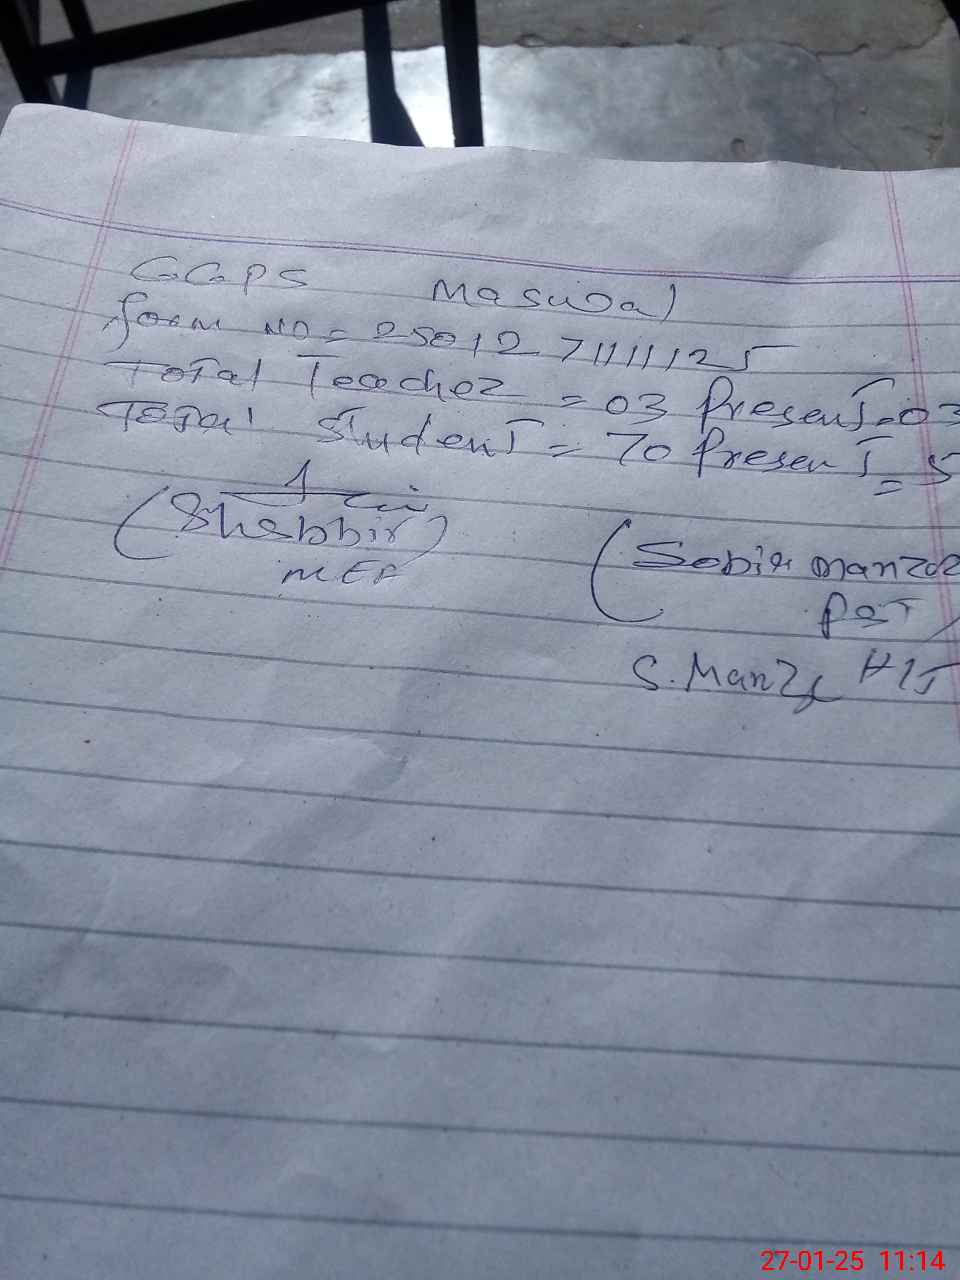 GGPS Masuwal
form NO = 250127111125
Total Teacher = 03 Present = 03
Total Student = 70 Present = 5
(Shabbir)
MEA
(Sobia Manzoor
PST)
S. Manz
27-01-25 11:14